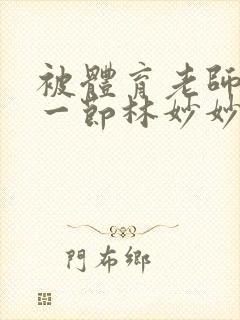 被體育老師
一節林妙妙
門布鄉